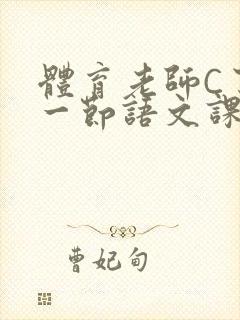 體育老師C
一節語文課
曹妃甸